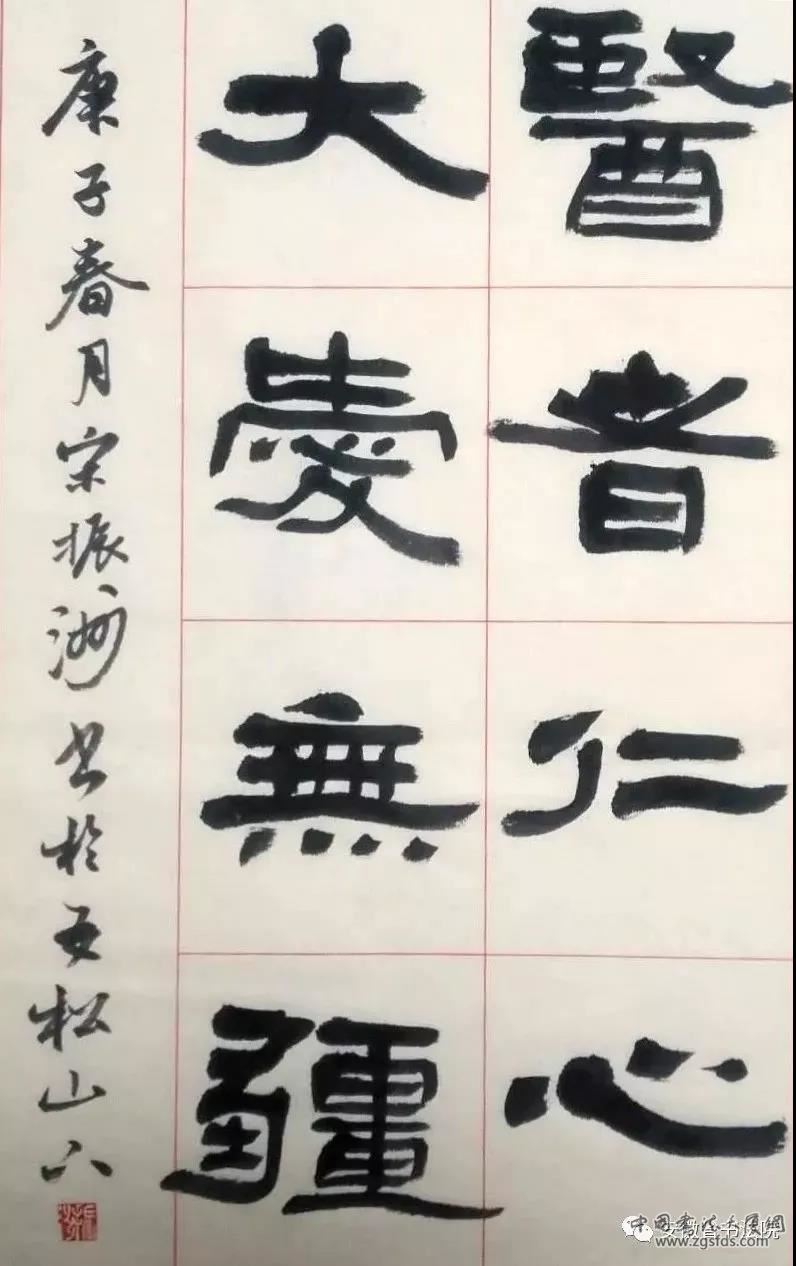 醫者仁心
大愛無疆
庚子春月宋振洲书於五松山下
中国书法大展網
www.zgsfds.com